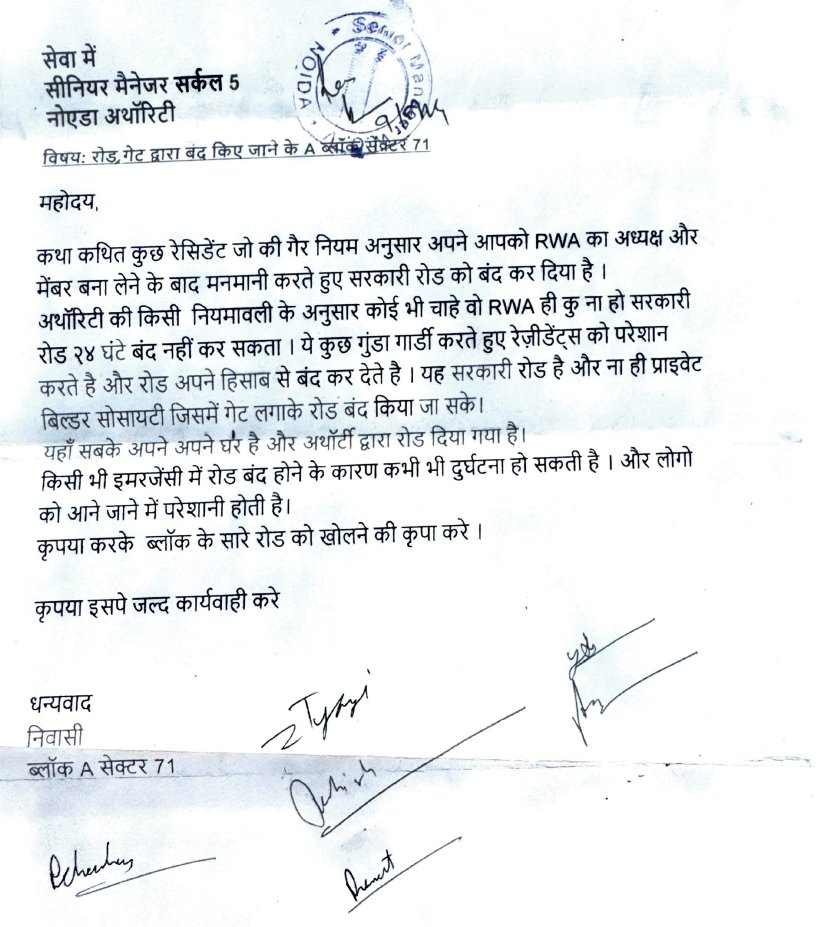 सेवा में
सीनियर मैनेजर सर्कल 5
नोएडा अथॉरिटी
Senior Man
NOIDA
विषय: रोड,गेट द्वारा बंद किए जाने के A ब्लॉक सेक्टर 71
महोदय,
कथा कथित कुछ रेसिडेंट जो की गैर नियम अनुसार अपने आपको RWA का अध्यक्ष और
मेंबर बना लेने के बाद मनमानी करते हुए सरकारी रोड को बंद कर दिया है ।
अथॉरिटी की किसी नियमावली के अनुसार कोई भी चाहे वो RWA ही कु ना हो सरकारी
रोड २४ घंटे बंद नहीं कर सकता । ये कुछ गुंडा गार्डी करते हुए रेज़ीडेंट्स को परेशान
करते है और रोड अपने हिसाब से बंद कर देते है । यह सरकारी रोड है और ना ही प्राइवेट
बिल्डर सोसायटी जिसमें गेट लगाके रोड बंद किया जा सके।
यहाँ सबके अपने अपने घर है और अथॉर्टी द्वारा रोड दिया गया है।
किसी भी इमरजेंसी में रोड बंद होने के कारण कभी भी दुर्घटना हो सकती है । और लोगो
को आने जाने में परेशानी होती है।
कृपया करके ब्लॉक के सारे रोड को खोलने की कृपा करे ।
कृपया इसपे जल्द कार्यवाही करे
धन्यवाद
निवासी
ब्लॉक A सेक्टर 71
Tyagi